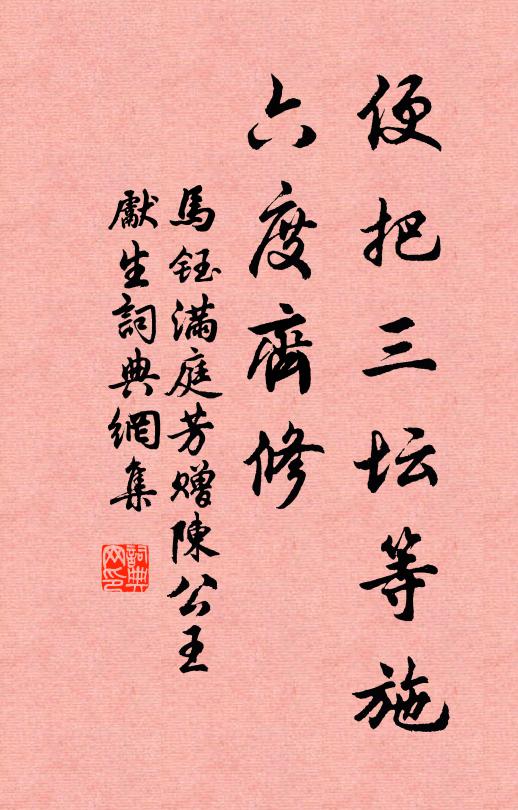 便把三坛等施
六度齊修
馬鈺滿庭芳赠陳公王
獻生詞典網集
詞典网印